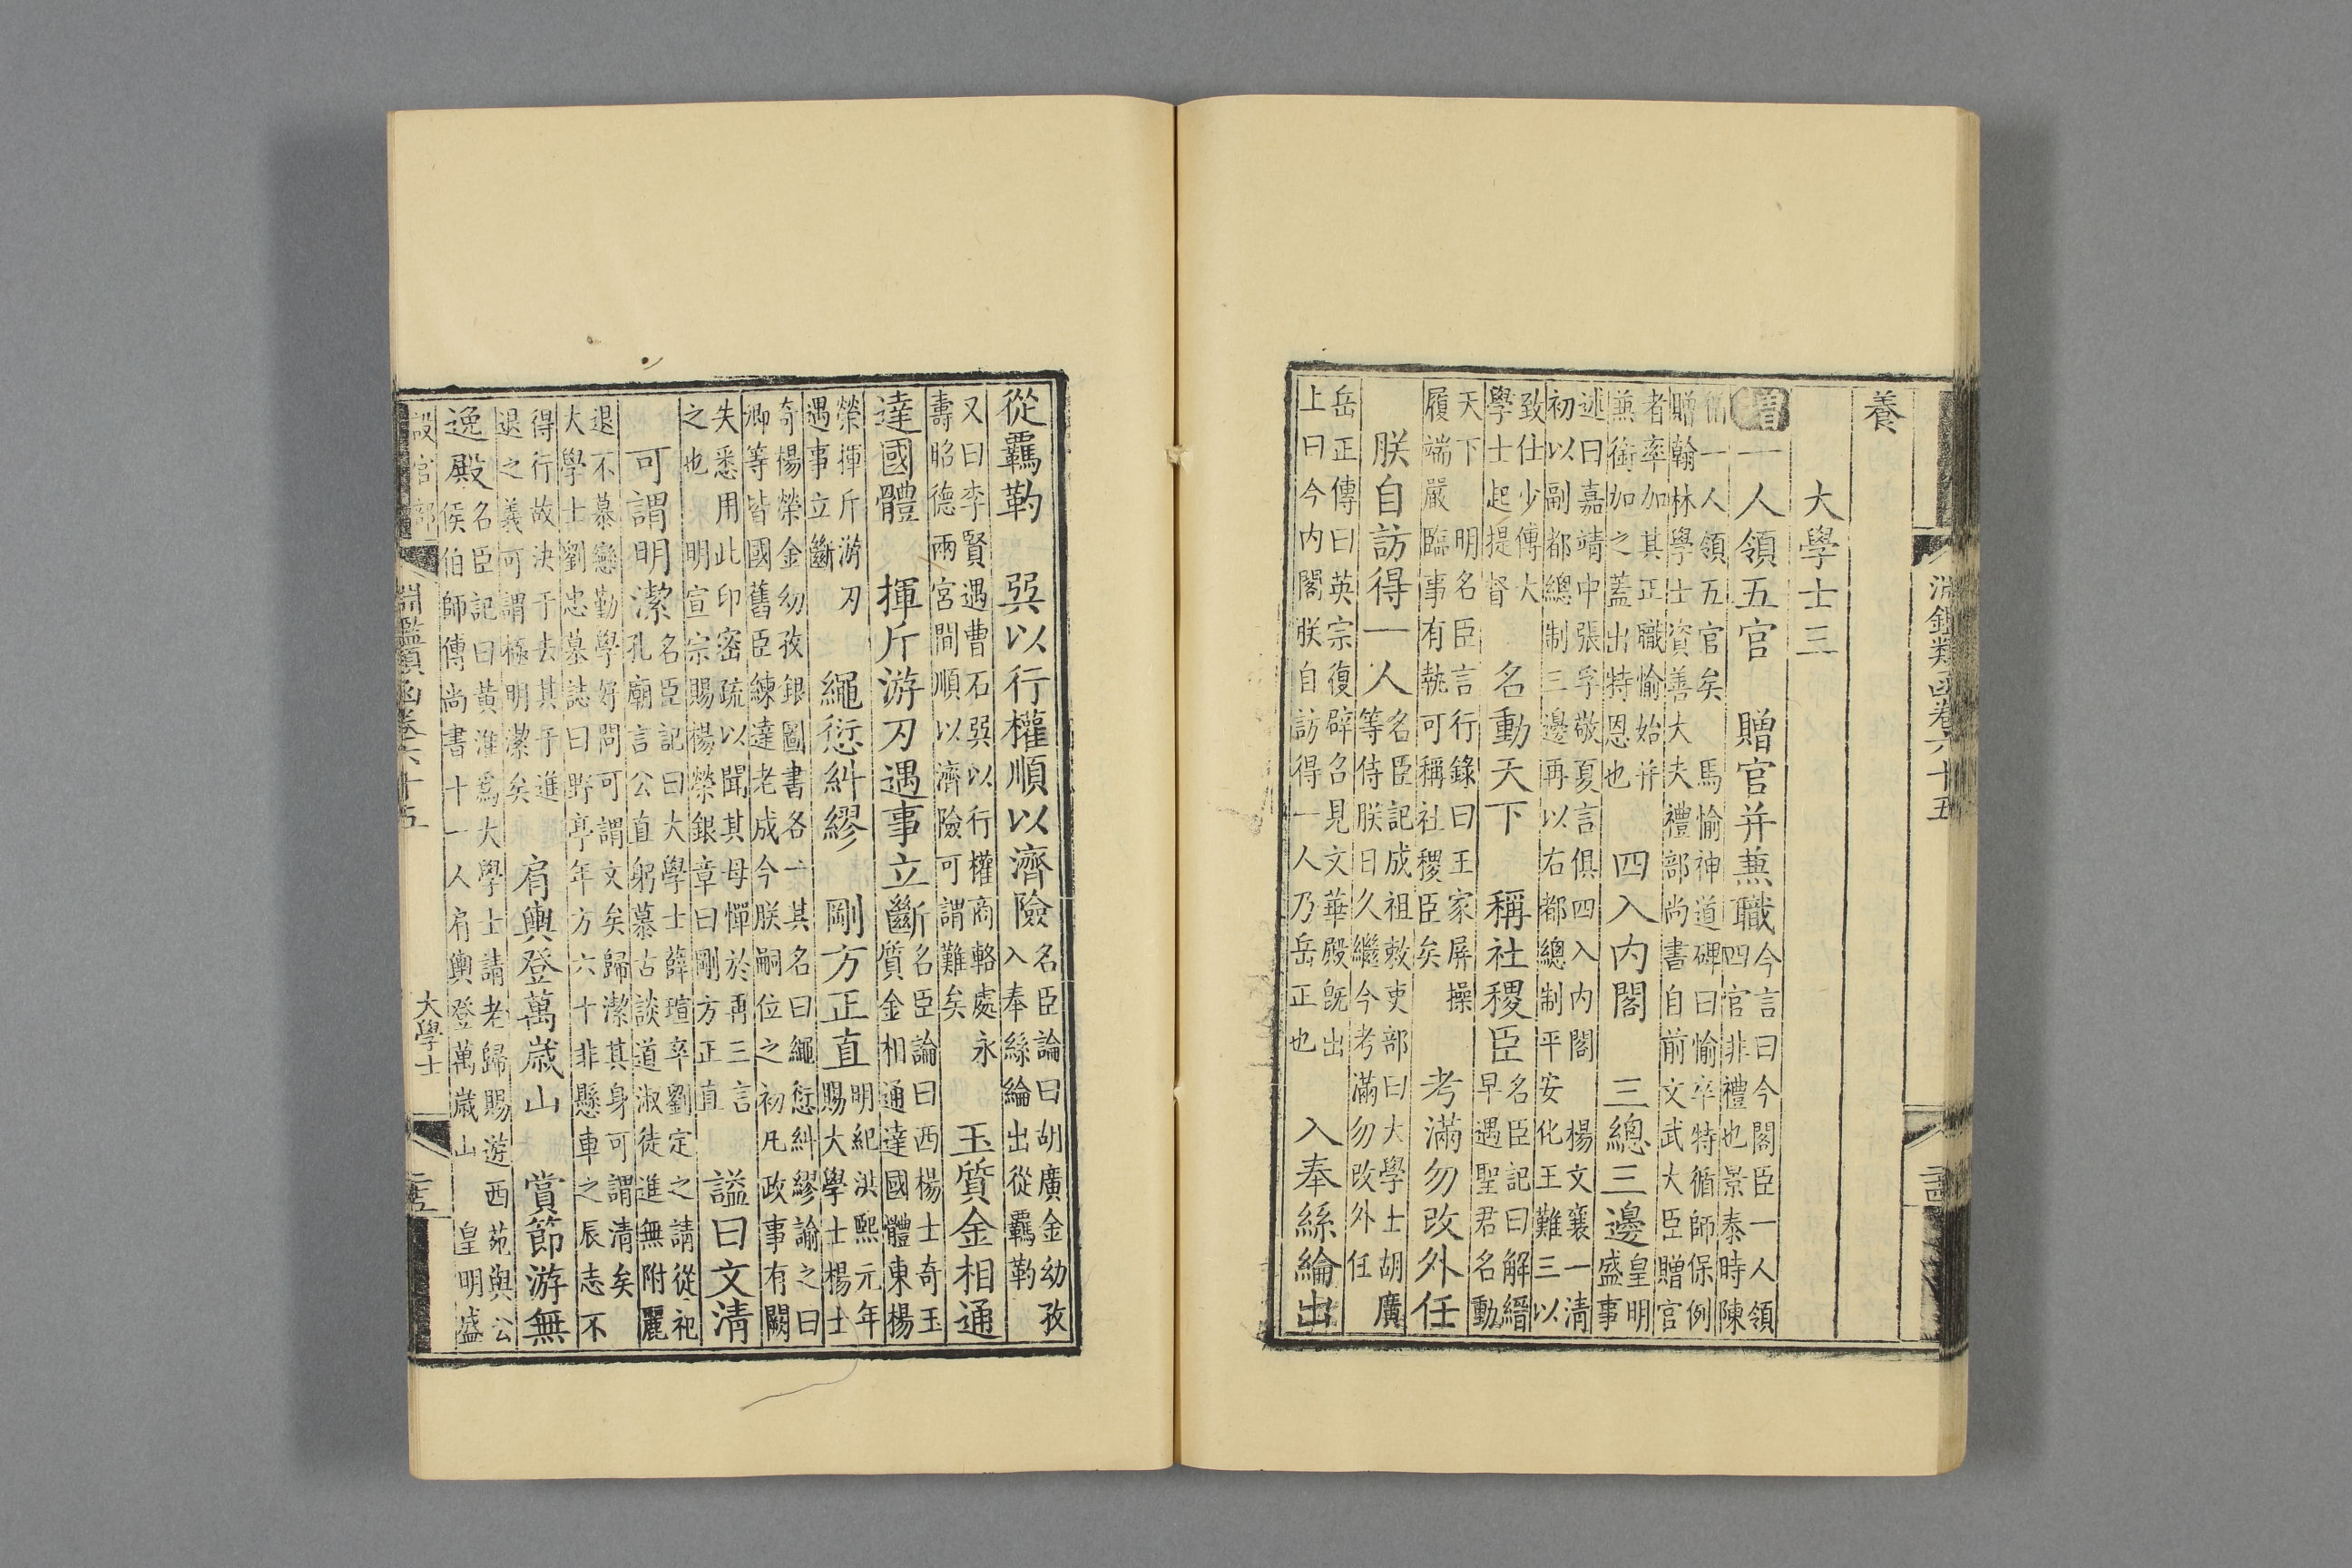 淵鑑類函卷六十五
養
大學士三
增一人領五官 贈官并兼職
今言曰今閣臣一人領
四官非禮也景泰時陳
循一人領五官矣 馬愉神道碑曰愉卒特循師保例
贈翰林學士資善大夫禮部尚書自前文武大臣贈官
者率加其正職愉始并
兼銜加之蓋出特恩也
四入內閣 三總三邊
皇明
盛事
述曰嘉靖中張孚敬夏言俱四入內閣 楊文襄一清
初以副都總制三邊再以右都總制平安化王難三以
致仕少傅大
學士起提督
名動天下 稱社稷臣
名臣記曰解縉
早遇聖君名動
天下 明名臣言行錄曰王家屏操
履端嚴臨事有執可稱社稷臣矣
考滿勿改外任
朕自訪得一人
名臣記成祖敕吏部曰大學士胡廣
等侍朕日久繼今考滿勿改外任
岳正傳曰英宗復辟召見文華殿既出
上曰今內閣朕自訪得一人乃岳正也
入奉絲綸出
從羈勒 巽以行權順以濟險
名臣論曰胡廣金幼孜
入奉絲綸出從羈勒
又曰李賢遇曹石巽以行權商輅處永
壽昭德兩宮間順以濟險可謂難矣
玉質金相通
達國體 揮斤游刃遇事立斷
名臣論曰西楊士奇玉
質金相通達國體東楊
榮揮斤游刃
遇事立斷
繩愆糾繆 剛方正直
明紀洪熙元年
賜大學士楊士
奇楊榮金幼孜銀圖書各一其名曰繩愆糾繆諭之曰
卿等皆國舊臣練達老成今朕嗣位之初凡政事有闕
失悉用此印密疏以聞其母憚於再三言
之也 明宣宗賜楊榮銀章曰剛方正直
諡曰文清
可謂明潔
名臣記曰大學士薛瑄卒劉定之請從祀
孔廟言公直躬慕古談道淑徒進無附麗
退不慕戀勤學好問可謂文矣歸潔其身可謂清矣
大學士劉忠墓誌曰野亭年方六十非懸車之辰志不
得行故決于去其于進
退之義可謂極明潔矣
肩輿登萬歲山 賞節游無
逸殿
名臣記曰黃淮爲大學士請老歸賜遊西苑與公
侯伯師傅尚書十一人肩輿登萬歲山 皇明盛
設官部
淵鑑類函卷六十五
大學士